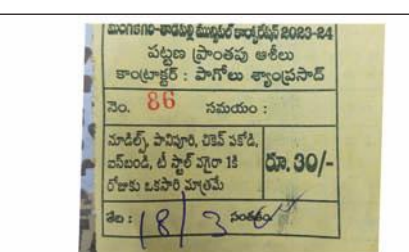 మంగళగిరి-తాడేపల్లి మున్సిపల్ కార్పొరేషన్ 2023-24
పట్టణ ప్రాంతపు ఆశీలు
కాంట్రాక్టర్ : పాగోలు శ్యాంప్రసాద్
నెం. 86 సమయం :
నూడిల్స్, పానిపూరి, చికెన్ పకోడి,
ఐస్‌బండి, టీ స్టాల్ వగైరా 1కి
రోజుకు ఒకసారి మాత్రమే
రూ. 30/-
తేది : 18/3 సంతకం